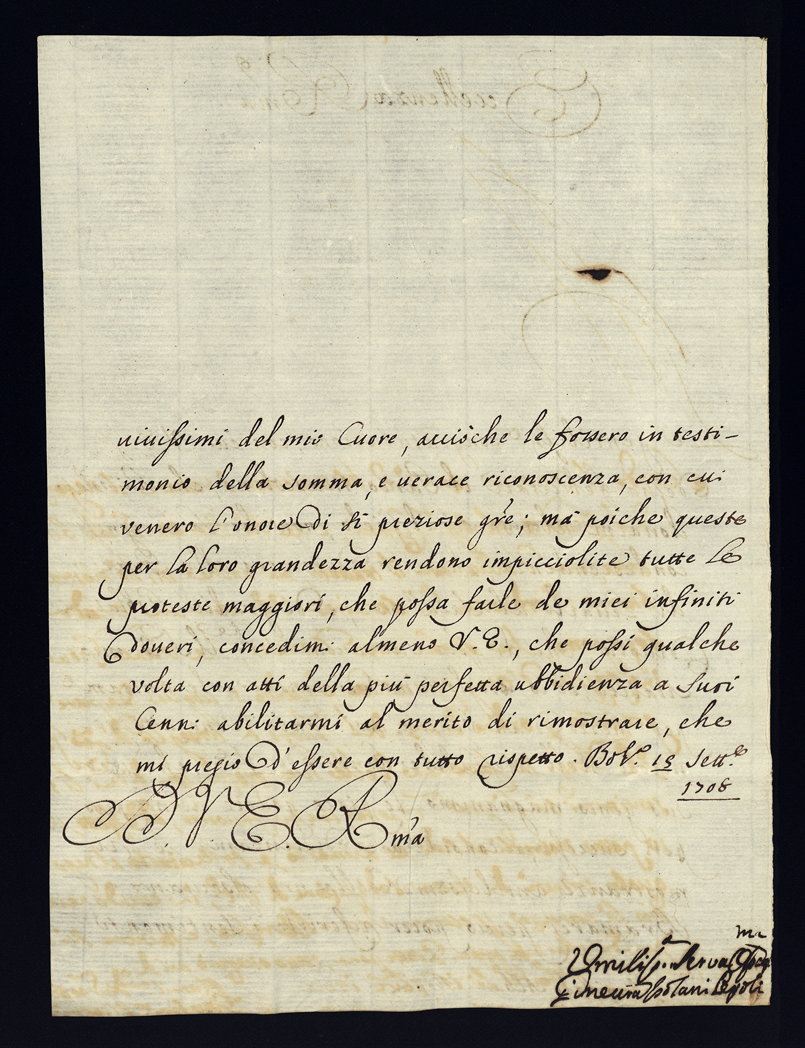 uiuissimi del mio Cuore, acciòche le fossero in testi-
monio della somma, e uerace riconoscenza, con cui
venero l'onore di sì preziose gr̃e; mà poiche queste
per la loro grandezza rendono impicciolite tutte le
proteste maggiori, che possa farle de miei infiniti
doueri, concedimi almeno V.E., che possi qualche
volta con atti della più perfetta ubbidienza a suoi
Cenni abilitarmi al merito di rimostrare, che
mi pregio d'essere con tutto rispetto. Bol.ª 18 Sett.e
1708
D. V. E. Rm̃a
Vmiliss.a Serua
Gineura Isolani Pepoli